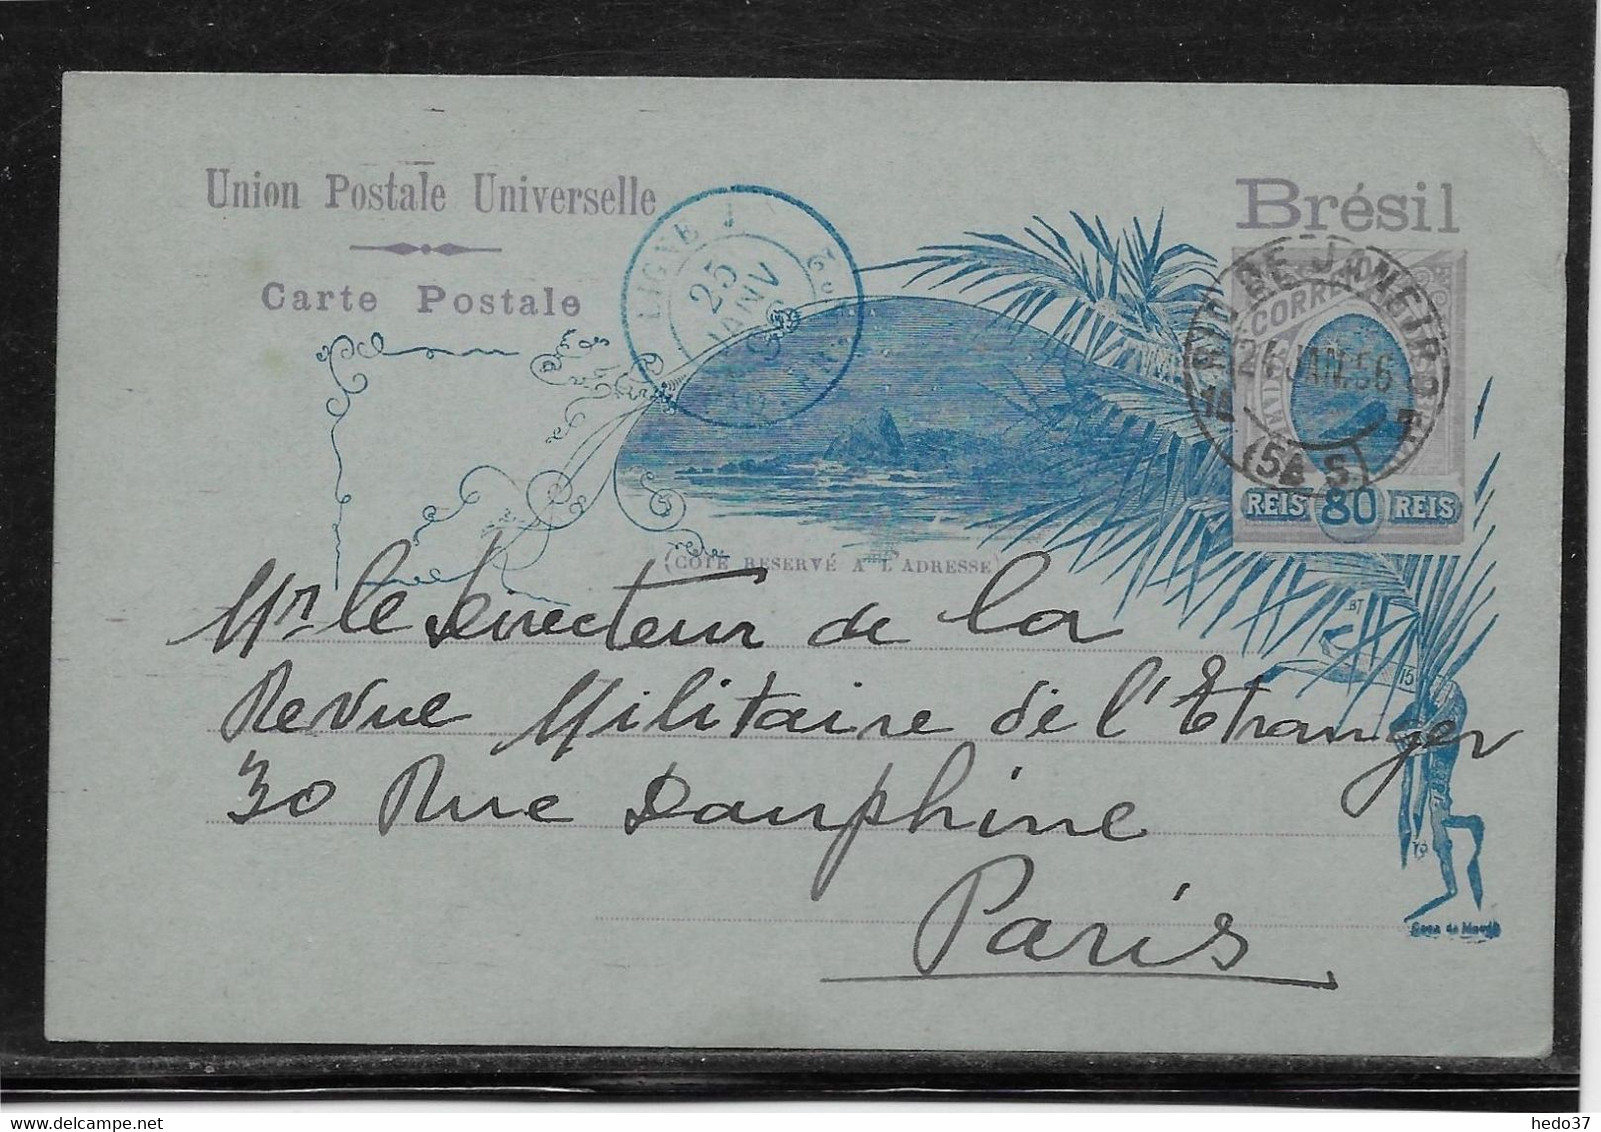 Union Postale Universelle
Carte Postale
Brésil
LIGNE J
25
JANV
RIO DE JANEIRO
CORRE
JAN.
REIS 80 REIS
(COTÉ RESERVÉ A L'ADRESSE)
Mr le Directeur de la
Revue Militaire de l'Etranger
30 Rue Dauphine
Paris
15
hedo37